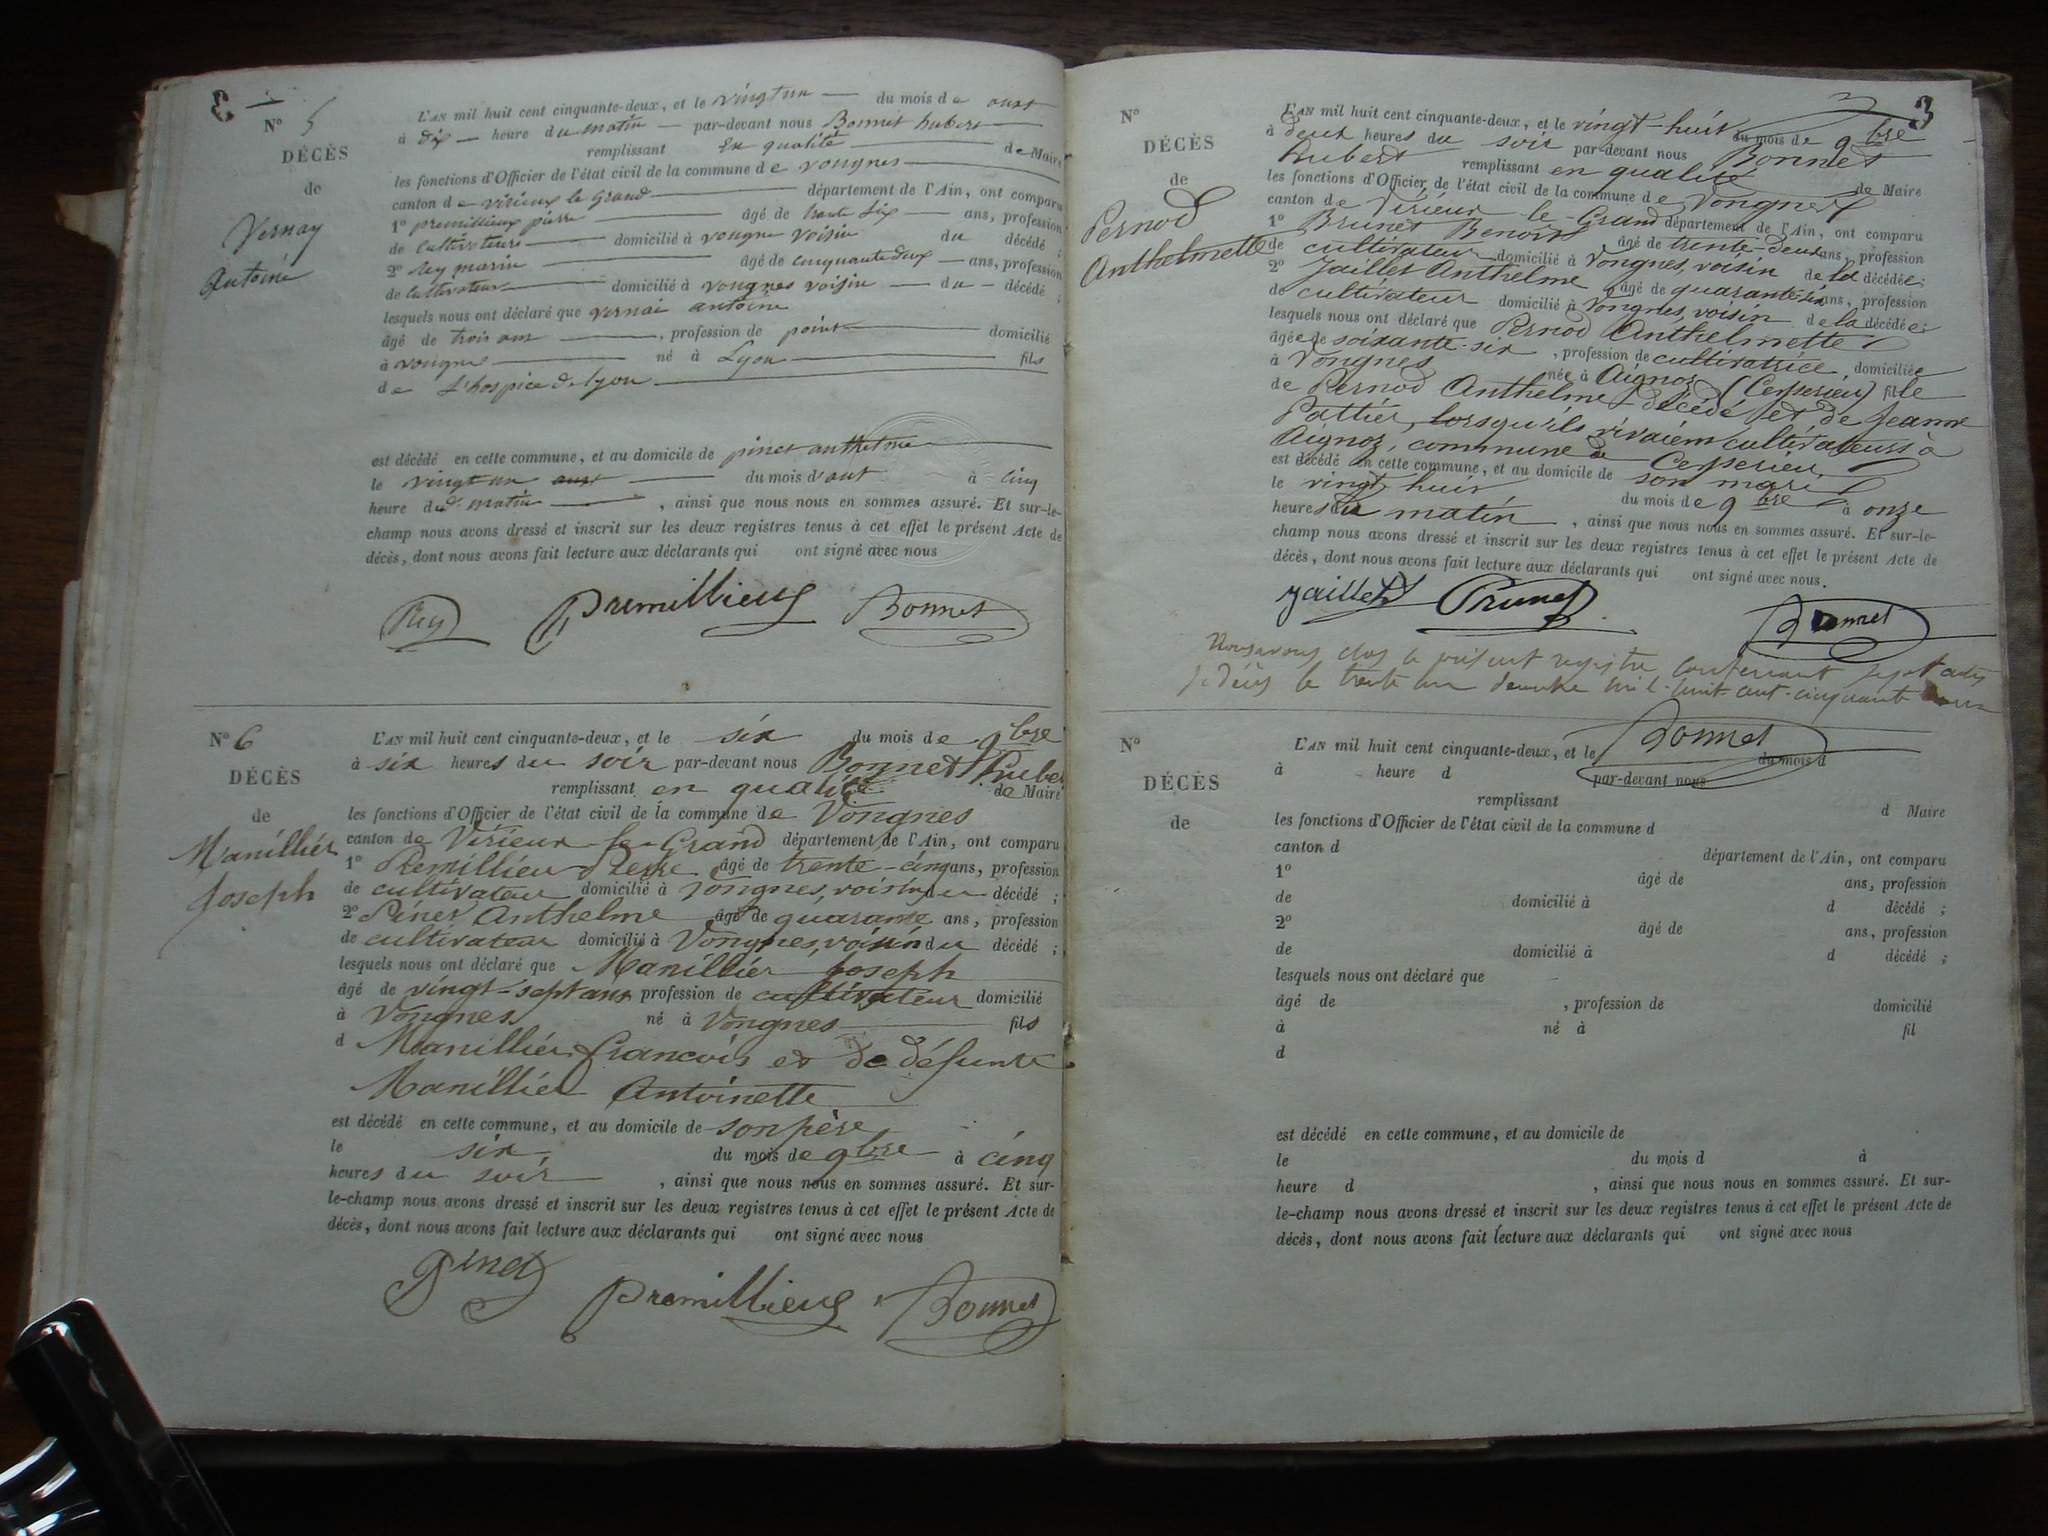 3
Nº 5
DÉCÈS
de
Vernay
Antoine
L'AN mil huit cent cinquante-deux, et le vingt un du mois de aust
à dix heure du matin par-devant nous Bonnet hubert
remplissant en qualité de Maire
les fonctions d'Officier de l'état civil de la commune de vongnes
canton de virieux le Grand département de l'Ain, ont comparu
1º premillieux pierre âgé de trante six ans, profession
de Cultivateure domicilié à vongne voisin du décédé ;
2º Rey marin âgé de cinquante deux ans, profession
de Cultivateur domicilié à vongnes voisin du décédé ;
lesquels nous ont déclaré que vernai antoine
âgé de trois ans, profession de point domicilié
à vongne né à Lyon fils
de L'hospice de lyon
est décédé en cette commune, et au domicile de pinet anthelme
le vingt un aust du mois d'aut à cinq
heure du matin, ainsi que nous nous en sommes assuré. Et sur-le-
champ nous avons dressé et inscrit sur les deux registres tenus à cet effet le présent Acte de
décès, dont nous avons fait lecture aux déclarants qui ont signé avec nous
Rey Premillieux Bonnet
Nº 6
DÉCÈS
de
Manillier
Joseph
L'AN mil huit cent cinquante-deux, et le six du mois de 9bre
à six heures du soir par-devant nous Bonnet Huber
remplissant en qualité de Maire
les fonctions d'Officier de l'état civil de la commune de Vongnes
canton de Virieux-le-Grand département de l'Ain, ont comparu
1º Premillieu Pierre âgé de trente-cinq ans, profession
de cultivateur domicilié à Vongnes, voisin du décédé ;
2º Pinet Anthelme âgé de quarante ans, profession
de cultivateur domicilié à Vongnes, voisin du décédé ;
lesquels nous ont déclaré que Manillier Joseph
âgé de vingt-sept ans profession de cultivateur domicilié
à Vongnes né à Vongnes fils
d Manillier francois et de défunte
Manillier Antoinette
est décédé en cette commune, et au domicile de son père
le six du mois de 9bre à cinq
heures du soir, ainsi que nous nous en sommes assuré. Et sur-
le-champ nous avons dressé et inscrit sur les deux registres tenus à cet effet le présent Acte de
décès, dont nous avons fait lecture aux déclarants qui ont signé avec nous
Pinet Premillieux Bonnet
3
Nº
DÉCÈS
de
Pernod
Anthelmette
L'AN mil huit cent cinquante-deux, et le vingt-huit du mois de 9bre
à deux heures du soir par-devant nous Bonnet
hubert remplissant en qualité de Maire
les fonctions d'Officier de l'état civil de la commune de Vongnes
canton de Virieux-le-Grand département de l'Ain, ont comparu
1º Brunet Benoit âgé de trente-deux ans, profession
de cultivateur domicilié à Vongnes, voisin de la décédée;
2º Jaillet Anthelme âgé de quarante-six ans, profession
de cultivateur domicilié à Vongnes, voisin de la décédée;
lesquels nous ont déclaré que Pernod Anthelmette
âgée de soixante-six, profession de cultivatrice, domiciliée
à Vongnes née à Aignoz (Ceyserieu) fille
de Pernod Anthelme décédé et de Jeanne
Pattier, lorsqu'ils vivaient cultivateurs à
Aignoz, commune de Ceyserieu
est décédé en cette commune, et au domicile de son mari
le vingt huit du mois de 9bre à onze
heures du matin, ainsi que nous nous en sommes assuré. Et sur-le-
champ nous avons dressé et inscrit sur les deux registres tenus à cet effet le présent Acte de
décès, dont nous avons fait lecture aux déclarants qui ont signé avec nous.
Jaillet Brunet Bonnet
Nous avons clos le présent registre contenant sept actes
de décès le trente un decembre mil-huit-cent-cinquante
Bonnet
Nº
DÉCÈS
de
L'AN mil huit cent cinquante-deux, et le du mois d
à heure d par-devant nous
remplissant d Maire
les fonctions d'Officier de l'état civil de la commune d
canton d département de l'Ain, ont comparu
1º âgé de ans, profession
de domicilié à d décédé ;
2º âgé de ans, profession
de domicilié à d décédé ;
lesquels nous ont déclaré que
âgé de , profession de domicilié
à né à fil
d
est décédé en cette commune, et au domicile de
le du mois d à
heure d , ainsi que nous nous en sommes assuré. Et sur-
le-champ nous avons dressé et inscrit sur les deux registres tenus à cet effet le présent Acte de
décès, dont nous avons fait lecture aux déclarants qui ont signé avec nous